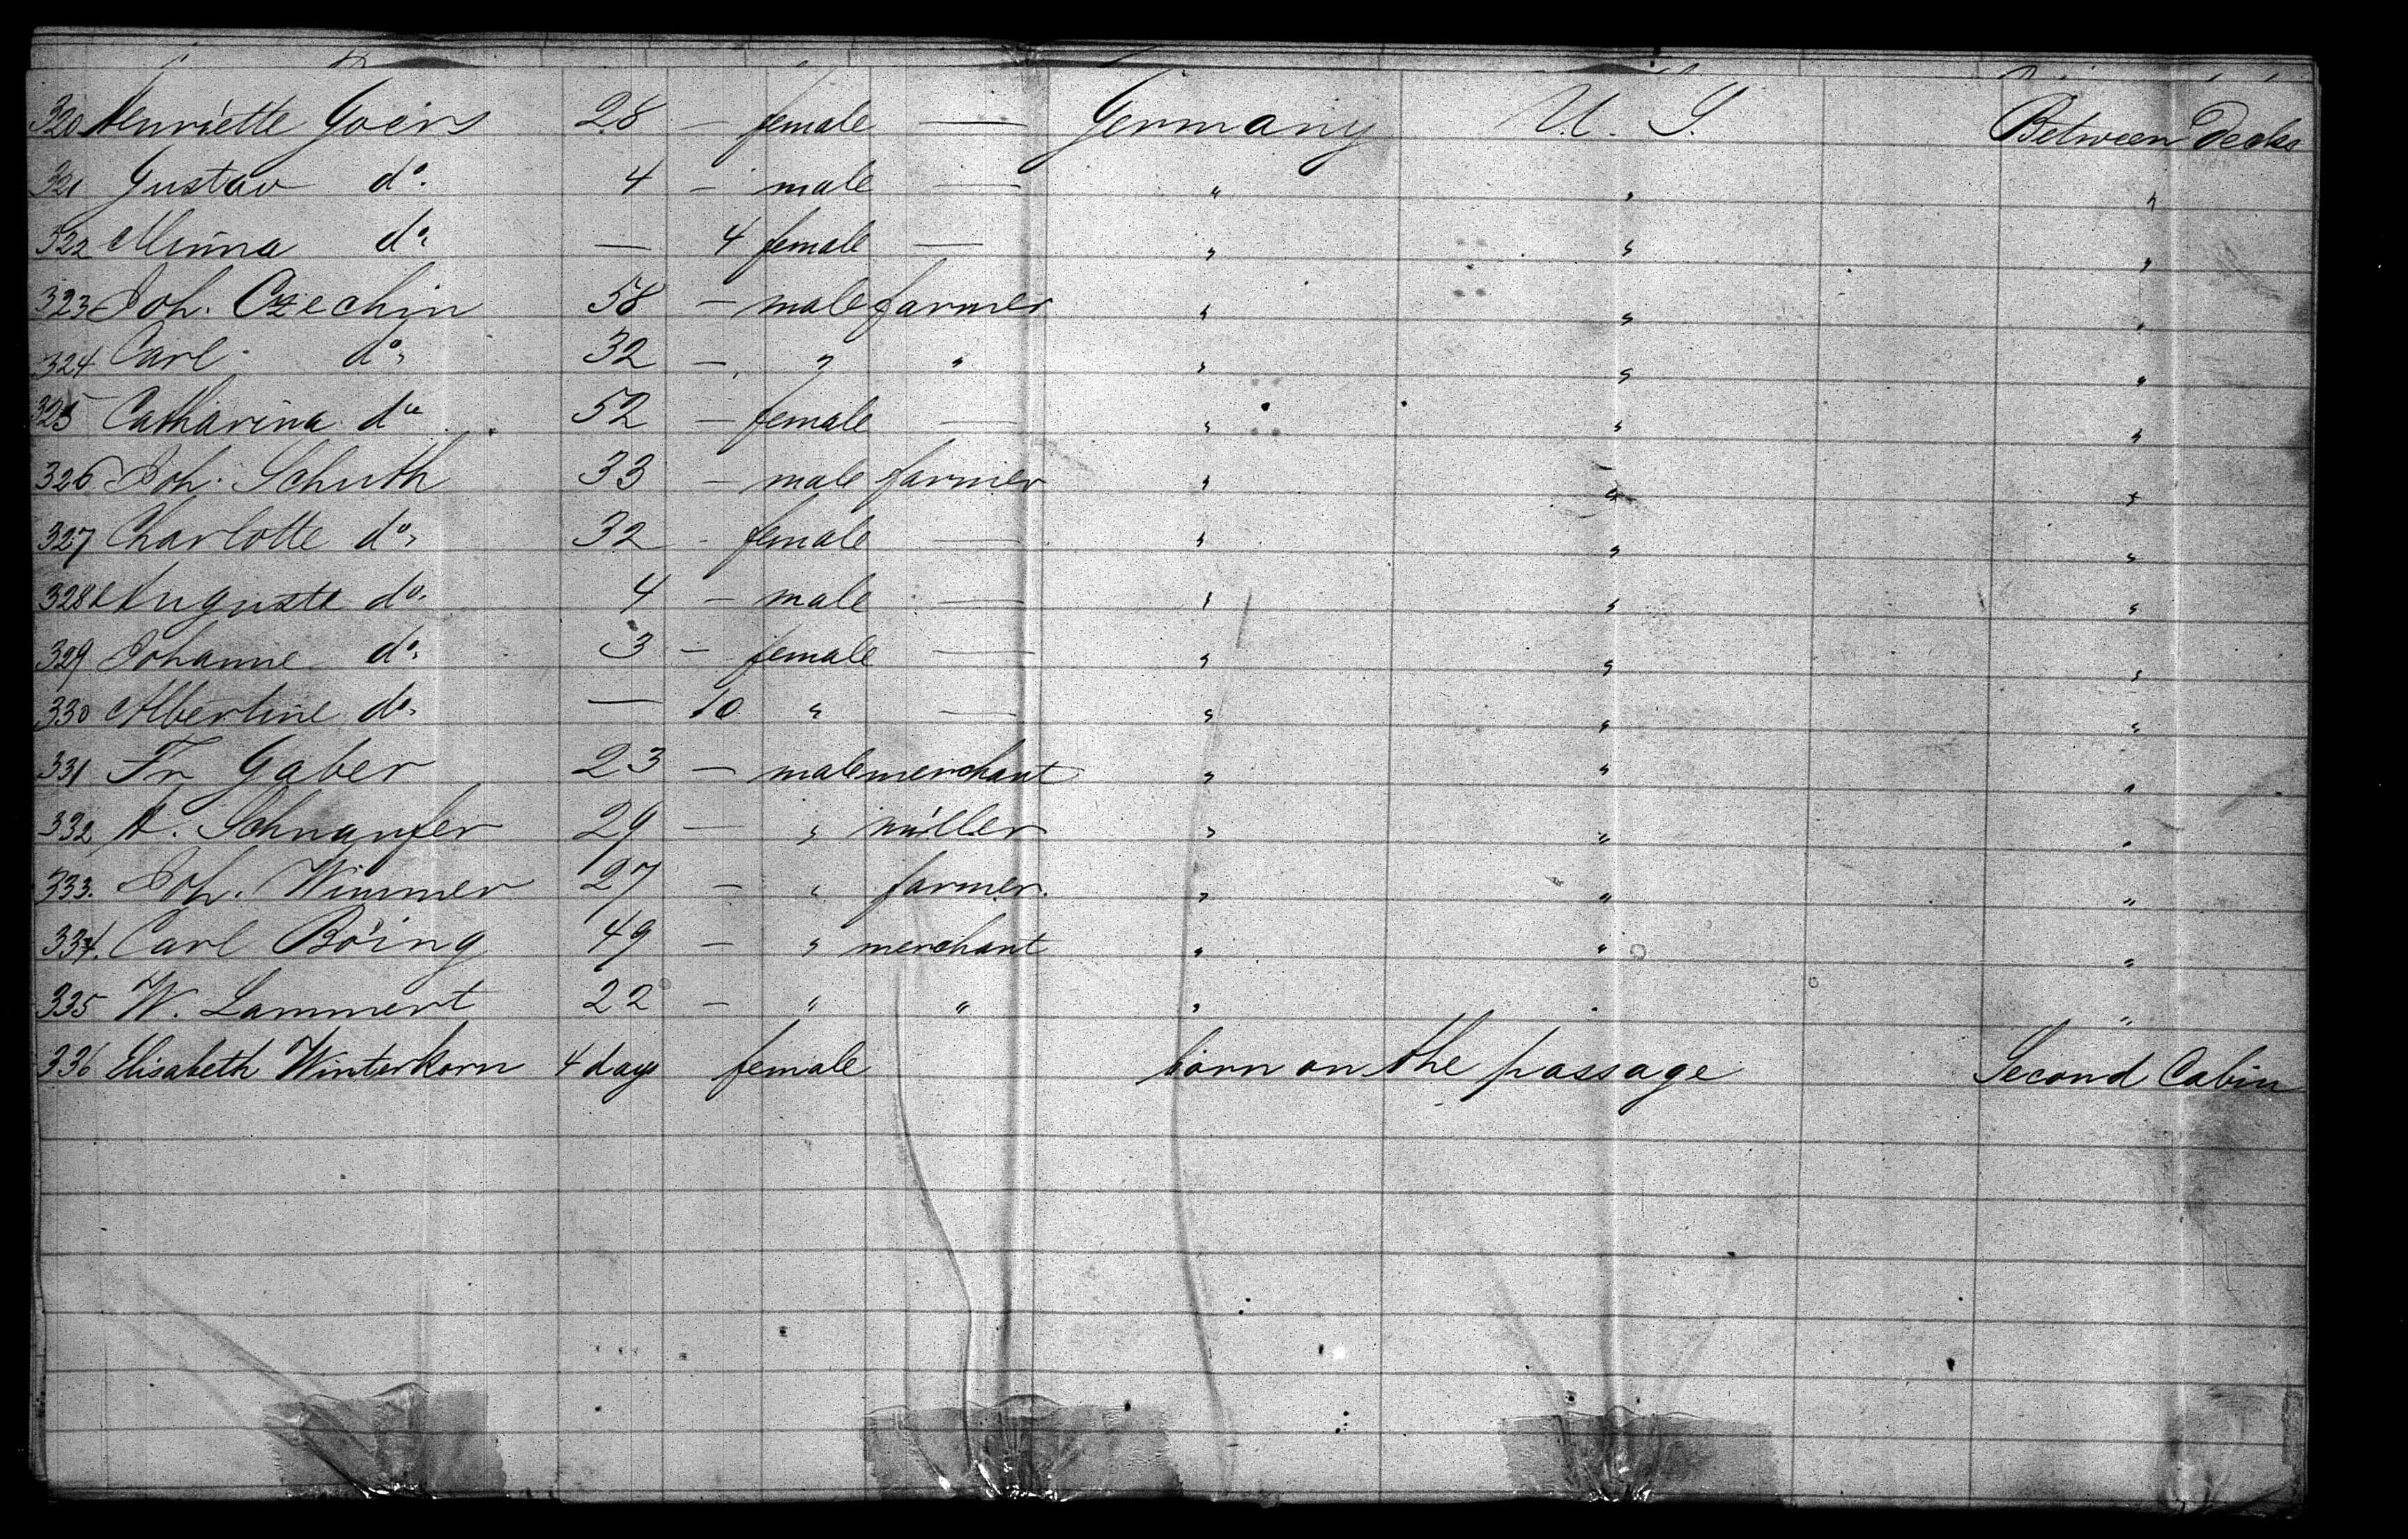 320 Henriette Goers 28 — female — Germany U. S. Between Decks
321 Gustav do. 4 — male — " " "
322 Minna do. — 4 female — " " "
323 Joh. Czechin 58 — male farmer " " "
324 Carl do. 32 — " " " " "
325 Catharina do 52 — female — " " "
326 Joh. Schuth 33 — male farmer " " "
327 Charlotte do. 32 - female — " " "
328 Auguste do. 4 — male — " " "
329 Johanne do. 3 — female — " " "
330 Albertine do. — 10 " — " " "
331 Fr Gaber 23 — male merchant " " "
332 A. Schnaufer 29 — " müller " " "
333. Joh. Wimmer 27 — " farmer. " " "
334. Carl Böing 49 — " merchant " " "
335 W. Lammert 22 — " " " " "
336 Elisabeth Winterkorn 4 days female born on the passage Second Cabin